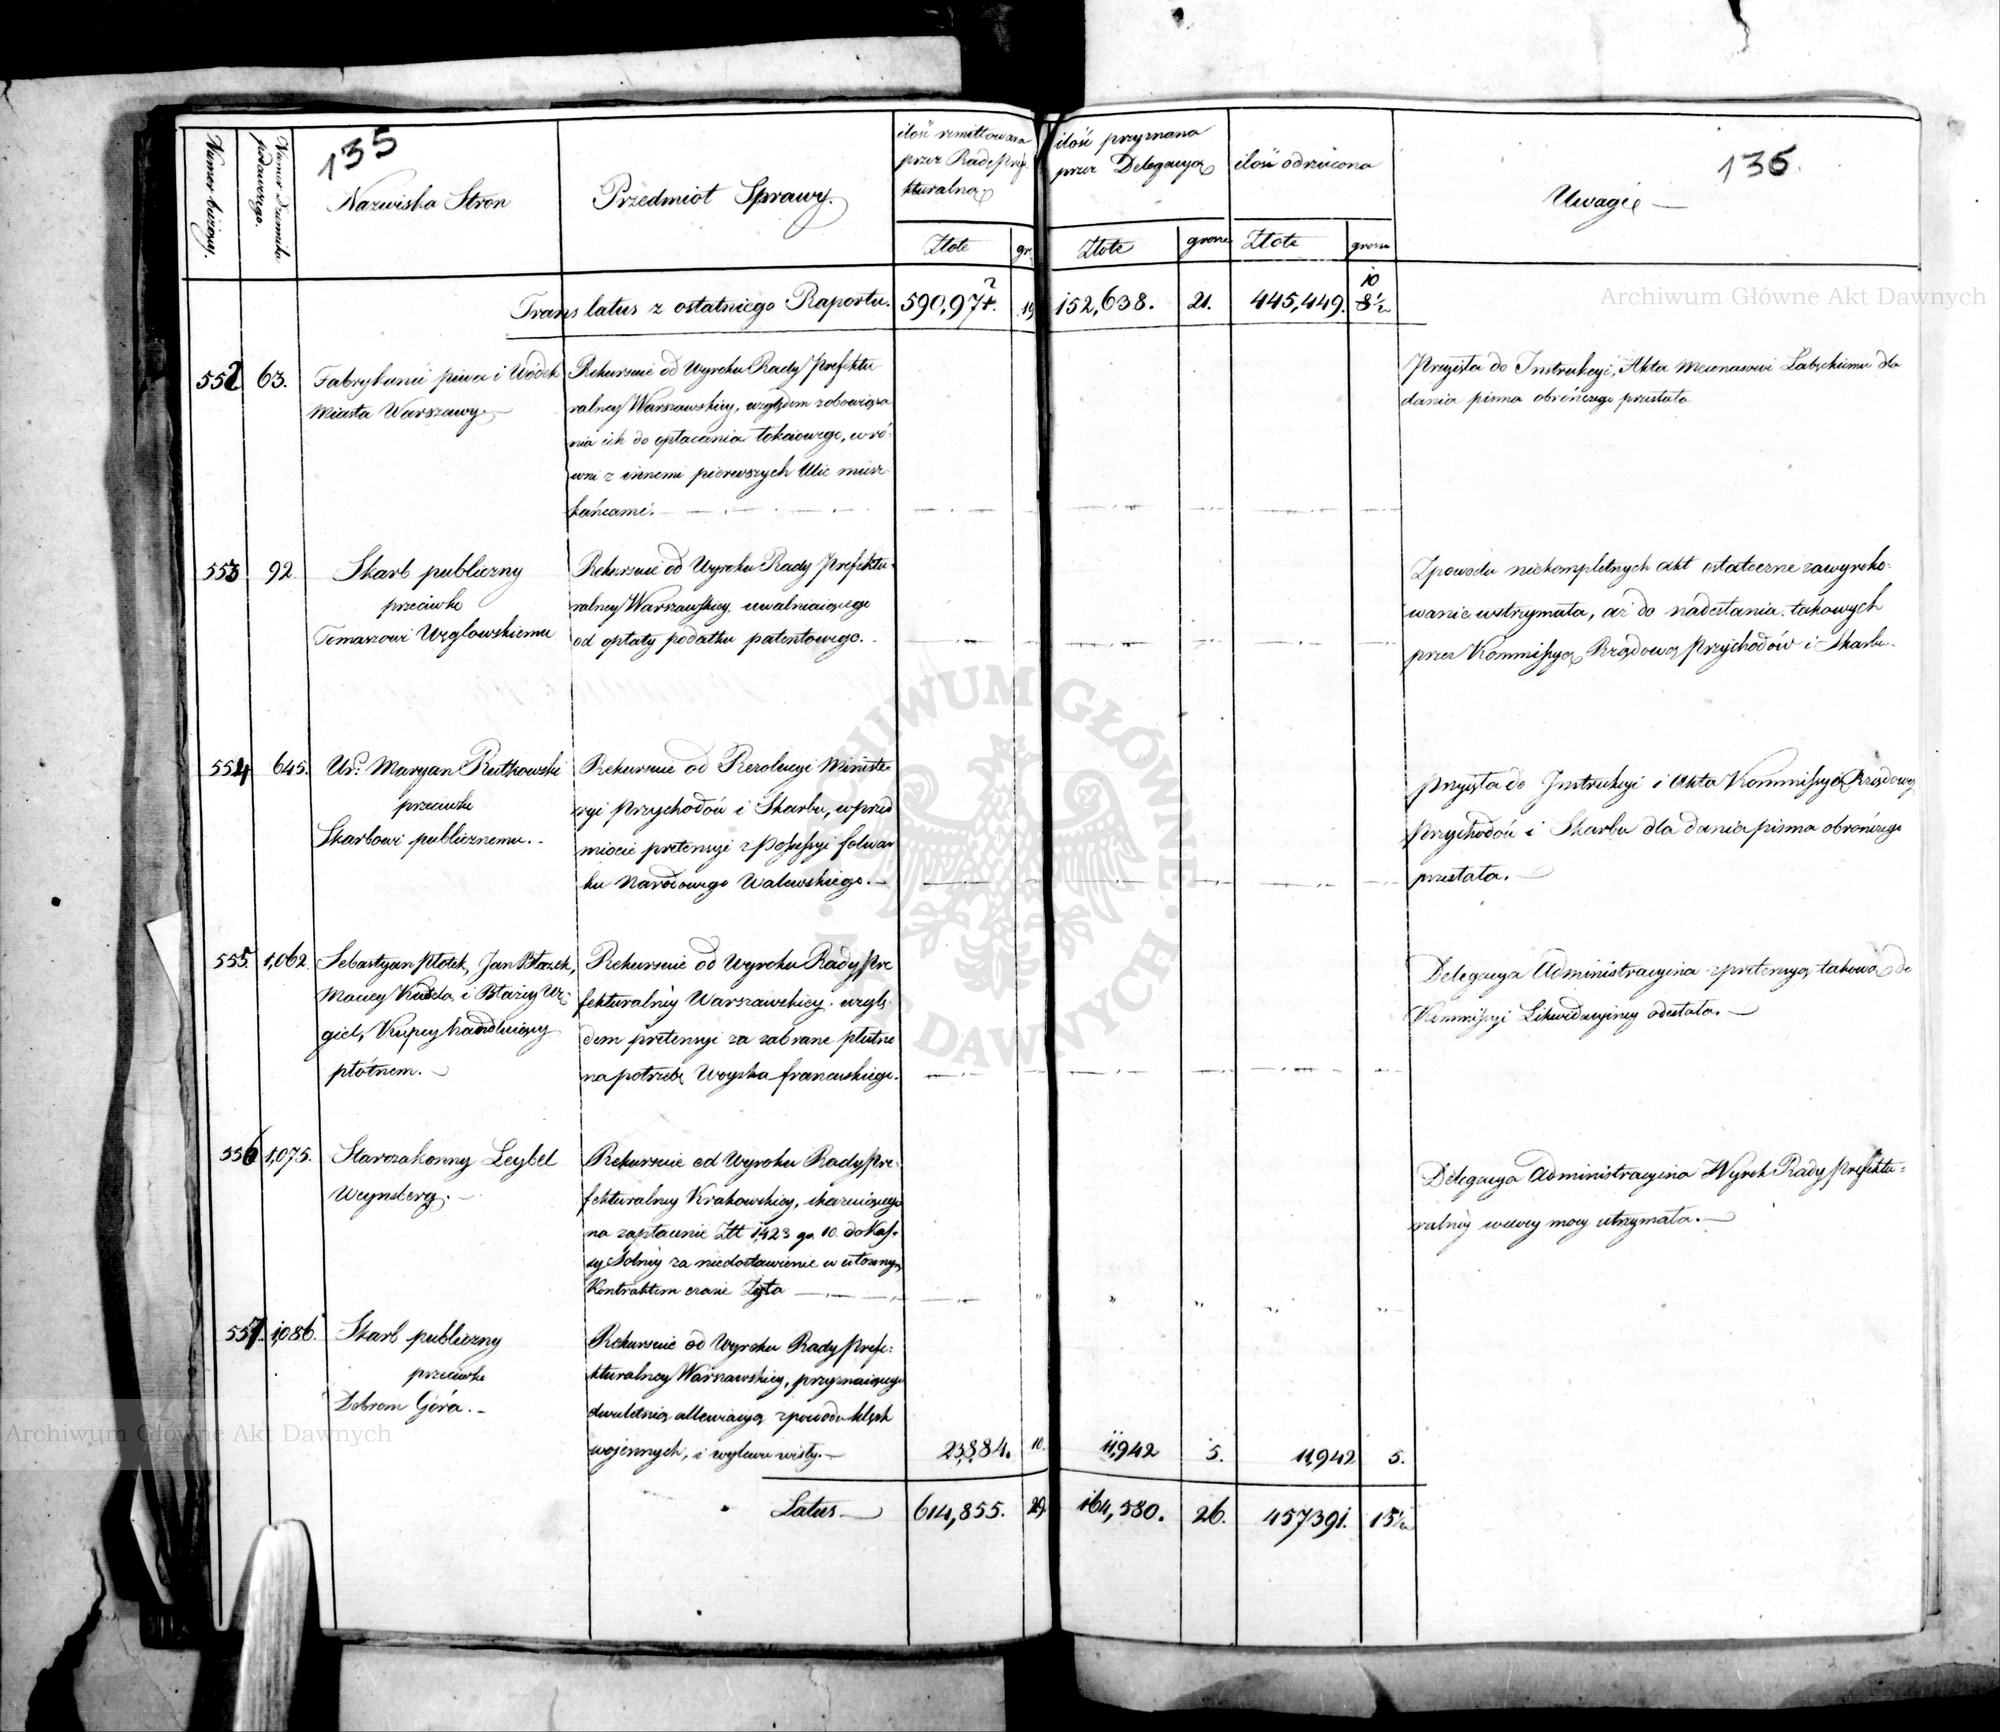 135
136.
Numer bieżący.
Numer Dziennika
podawczego.
Nazwiska Stron
Przedmiot Sprawy.
ilość remittowana
przez Radę Prefe
kturalną
ilość przyznana
przez Delegacyą
ilość odrzucona
Uwagi
Złote
gr.
Złote
grosze
Złote
grosze
Translatus z ostatniego Raportu. 590,97 19 152,638. 21. 445,449. 10
8½
552 63. Fabrykanci piwa i Wódek
Miasta Warszawy.
Rekursuie od Wyroku Rady Prefektu
ralney Warszawskiey, względem zobowiąza
nia ich do opłacania łokciowego, w ró-
wni z innemi pierwszych Ulic miesz-
kańcami.
Przyięta do Instrukcyi, Akta Mecenasowi Łabęckiemu dla
dania pisma obrończego przesłała
553 92. Skarb publiczny
przeciwko
Tomaszowi Węglowskiemu
Rekursuie od Wyroku Rady Prefektu-
ralney Warszawskiey, uwalniaiącego
od opłaty podatku patentowego.
Z powodu niekompletnych akt ostateczne zawyroko-
wanie wstrzymała, aż do nadesłania takowych
przez Kommissyą Rządową Przychodów i Skarbu.
554 645. Ur. Maryan Rutkowski
przeciwko
Skarbowi publicznemu.
Rekursuie od Rezolucyi Ministe-
ryi Przychodów i Skarbu, w przed
miocie pretensyi z Possessyi folwar
ku Narodowego Walewskiego.
Przyięta do Instrukcyi i Akta Kommissyi Rządowey
Przychodów i Skarbu dla dania pisma obrończego
przesłała.
555. 1,062. Sebastyan Płotek, Jan Błazek,
Maciey Kudela, i Błażey Wę
giel, Kupcy handluiący
płótnem.
Rekursuie od Wyroku Rady Pre
fekturalney Warszawskiey, wzglę
dem pretensyi za zabrane płutno
na potrzebę Woyska francuskiego.
Delegacya Administracyina z pretensyą takową do
Kommissyi Likwidacyiney odesłała.
556 1,075. Starozakonny Leybel
Weynsberg.
Rekursuie od Wyroku Rady Pre-
fekturalney Krakowskiey, skazuiącego
na zapłacenie Złt 1,423 gr 10. do Kas-
sy Solney za niedostawienie w ułożonym
Kontraktem czasie Żyta
Delegacya Administracyina Wyrok Rady Prefektu-
ralney w swey mocy utrzymała.
557. 1,086. Skarb publiczny
przeciwko
Dobrom Góra.
Rekursuie od Wyroku Rady Prefe-
kturalney Warszawskiey, przyznaiącego
dwuletnią allewiacyą z powodu klęsk
woiennych, i wylewu wisły. 23,884. 10. 11,942 5. 11,942 5.
Latus 614,855. 29. 164,580. 26. 457391. 15½
Archiwum Główne Akt Dawnych
Archiwum Główne Akt Dawnych
ARCHIWUM GŁÓWNE AKT DAWNYCH